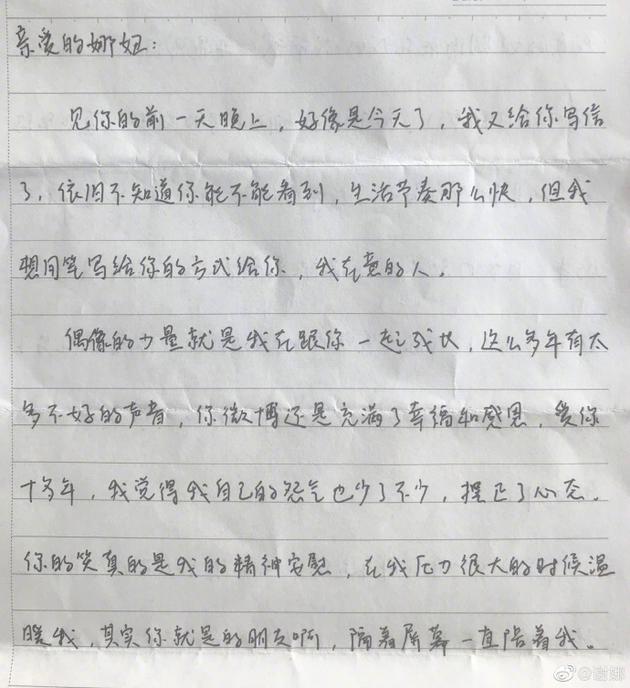 亲爱的娜姐：
见你的前一天晚上，好像是今天了，我又给你写信
了，依旧不知道你能不能看到，生活节奏那么快，但我
想用笔写给你的方式给你，我在意的人。
偶像的力量就是我在跟你一起成长，这么多年有太
多不好的声音，你微博还是充满了幸福和感恩，爱你
十多年，我觉得我自己的怨气也少了不少，摆正了心态。
你的笑真的是我的精神安慰，在我压力很大的时候温
暖我，其实你就是的朋友啊，隔着屏幕一直陪着我。
@谢娜